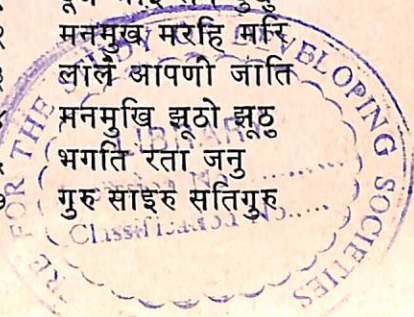 मनमुख मरहि मरि
लालै आपणी जाति
मनमुखि झूठो झूठु
भगति रता जनु
गुरु साइरु सतिगुरु
RE FOR THE STUDY OF DEVELOPING SOCIETIES
LIBRARY
No.......
Classification No......